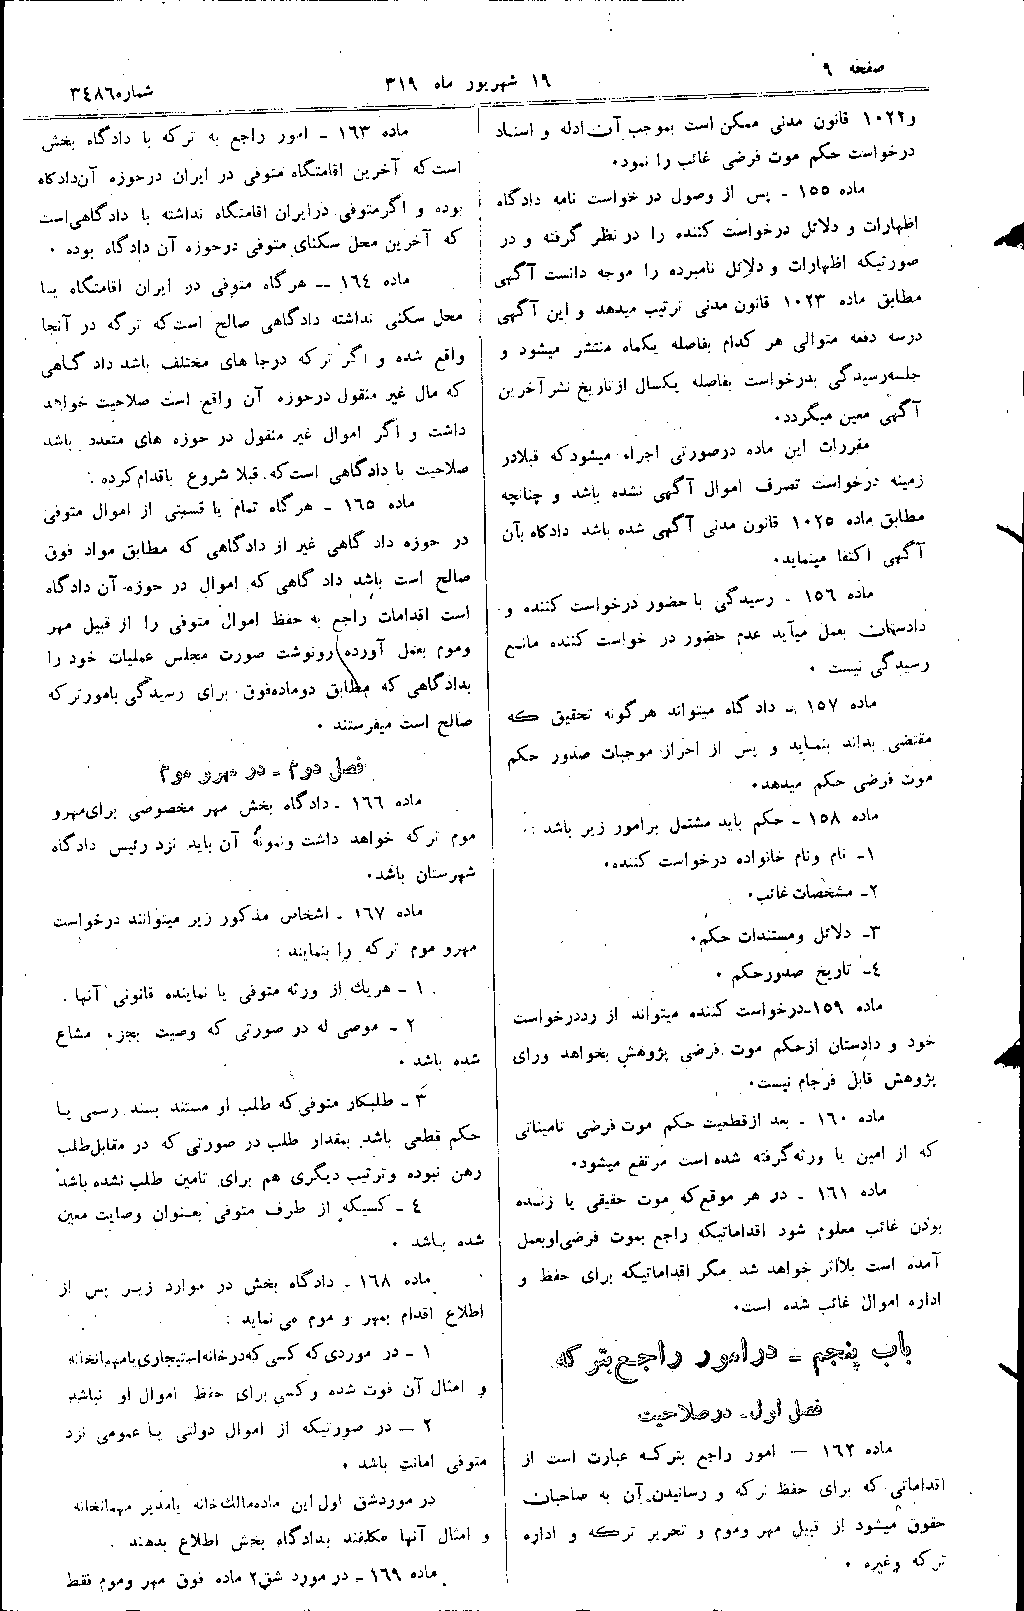 صفحه ۹
۱۹ شهریور ماه ۳۱۹
شماره ۳۴۸۶
و۱۰۲۲ قانون مدنی ممکن است بموجب آن ادله و اسناد
درخواست حکم موت فرضی غائب را نمود.
ماده ۱۵۵ - پس از وصول درخواست نامه دادگاه
اظهارات و دلائل درخواست کننده را در نظر گرفته و در
صورتیکه اظهارات و دلائل نامبرده را موجه دانست آگهی
مطابق ماده ۱۰۲۳ قانون مدنی ترتیب میدهد و این آگهی
درسه دفعه متوالی هر کدام بفاصله یکماه منتشر میشود و
جلسه رسیدگی بدرخواست بفاصله یکسال از تاریخ نشر آخرین
آگهی معین میگردد.
مقررات این ماده درصورتی اجراء میشود که قبلا در
زمینه درخواست تصرف اموال آگهی نشده باشد و چنانچه
مطابق ماده ۱۰۲۵ قانون مدنی آگهی شده باشد دادگاه بآن
آگهی اکتفا مینماید.
ماده ۱۵۶ - رسیدگی با حضور درخواست کننده و
دادستان بعمل میآید عدم حضور در خواست کننده مانع
رسیدگی نیست .
ماده ۱۵۷ - دادگاه میتواند هرگونه تحقیق که
مقتضی بداند بنماید و پس از احراز موجبات صدور حکم
موت فرضی حکم میدهد.
ماده ۱۵۸ - حکم باید مشتمل برامور زیر باشد :
۱- نام ونام خانواده درخواست کننده.
۲- مشخصات غائب.
۳- دلائل ومستندات حکم.
۴- تاریخ صدورحکم .
ماده ۱۵۹-درخواست کننده میتواند از رددرخواست
خود و دادستان ازحکم موت فرضی پژوهش بخواهد ورای
پژوهش قابل فرجام نیست.
ماده ۱۶۰ - بعد ازقطعیت حکم موت فرضی تامیناتی
که از امین یا ورثه گرفته شده است مرتفع میشود.
ماده ۱۶۱ - در هر موقع که موت حقیقی یا زنده
بودن غائب معلوم شود اقداماتیکه راجع بموت فرضی اوبعمل
آمده است بلااثر خواهد شد مگر اقداماتیکه برای حفظ و
اداره اموال غائب شده است.
باب پنجم - در امور راجع بترکه
فصل اول- درصلاحیت
ماده ۱۶۲ — امور راجع بترکه عبارت است از
اقداماتی که برای حفظ ترکه و رسانیدن آن به صاحبان
حقوق میشود از قبیل مهر وموم و تحریر ترکه و اداره
ترکه وغیره .
ماده ۱۶۳ - امور راجع به ترکه با دادگاه بخش
است که آخرین اقامتگاه متوفی در ایران درحوزه آن دادگاه
بوده و اگر متوفی درایران اقامتگاه نداشته با دادگاهی است
که آخرین محل سکنای متوفی درحوزه آن دادگاه بوده .
ماده ۱۶۴ -- هرگاه متوفی در ایران اقامتگاه یا
محل سکنی نداشته دادگاهی صالح است که ترکه در آنجا
واقع شده و اگر ترکه درجا های مختلف باشد دادگاهی
که مال غیر منقول درحوزه آن واقع است صلاحیت خواهد
داشت و اگر اموال غیر منقول در حوزه های متعدد باشد
صلاحیت با دادگاهی است که قبلا شروع باقدام کرده .
ماده ۱۶۵ - هرگاه تمام یا قسمتی از اموال متوفی
در حوزه دادگاهی غیر از دادگاهی که مطابق مواد فوق
صالح است باشد دادگاهی که اموال در حوزه آن دادگاه
است اقدامات راجع به حفظ اموال متوفی را از قبیل مهر
وموم بعمل آورده رونوشت صورت مجلس عملیات خود را
بدادگاهی که مطابق دوماده فوق برای رسیدگی بامور ترکه
صالح است میفرستد .
فصل دوم - در مهر و موم
ماده ۱۶۶ - دادگاه بخش مهر مخصوصی برای مهر و
موم ترکه خواهد داشت ونمونۀ آن باید نزد رئیس دادگاه
شهرستان باشد.
ماده ۱۶۷ - اشخاص مذکور زیر میتوانند درخواست
مهرو موم ترکه را بنمایند :
۱ - هریك از ورثه متوفی یا نماینده قانونی آنها .
۲ - موصی له در صورتی که وصیت بجزء مشاع
شده باشد .
۳ - طلبکار متوفی که طلب او مستند بسند رسمی یا
حکم قطعی باشد بمقدار طلب در صورتی که در مقابل طلب
رهن نبوده وترتیب دیگری هم برای تامین طلب نشده باشد
۴ - کسیکه از طرف متوفی بعنوان وصایت معین
شده باشد .
ماده ۱۶۸ - دادگاه بخش در موارد زیر پس از
اطلاع اقدام بمهر و موم می نماید :
۱ - در موردی که کسی که درخانه استیجاری یا مهمانخانه
و امثال آن فوت شده و کسی برای حفظ اموال او نباشد
۲ — در صورتیکه از اموال دولتی یا عمومی نزد
متوفی امانت باشد .
در موردشق اول این ماده مالك خانه یامدیر مهمانخانه
و امثال آنها مکلفند بدادگاه بخش اطلاع بدهند .
ماده ۱۶۹ - در مورد شق ۲ ماده فوق مهر وموم فقط